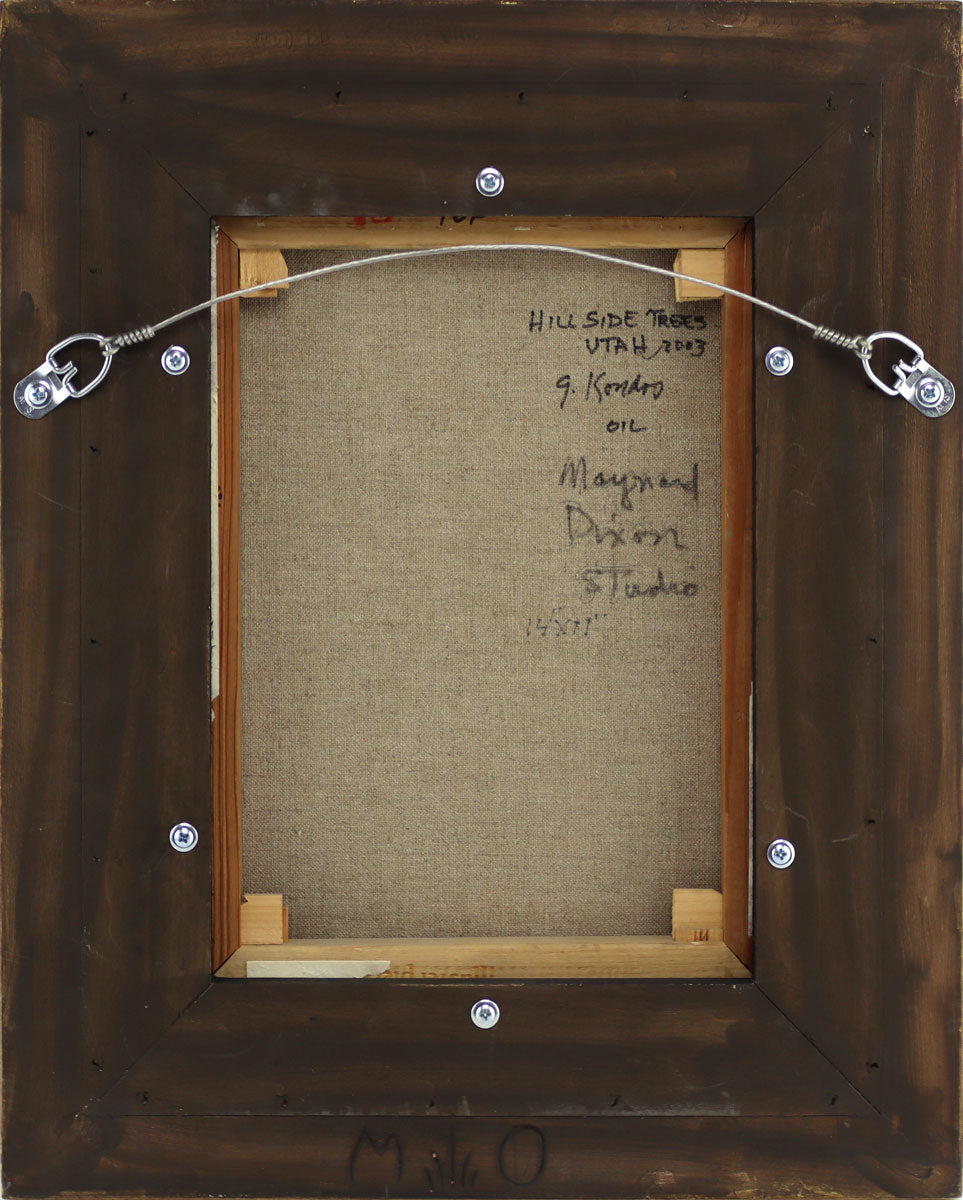 TOP
HILLSIDE TREES
UTAH, 2003
G. Kondos
OIL
Maynard
Dixon
STudio
M O